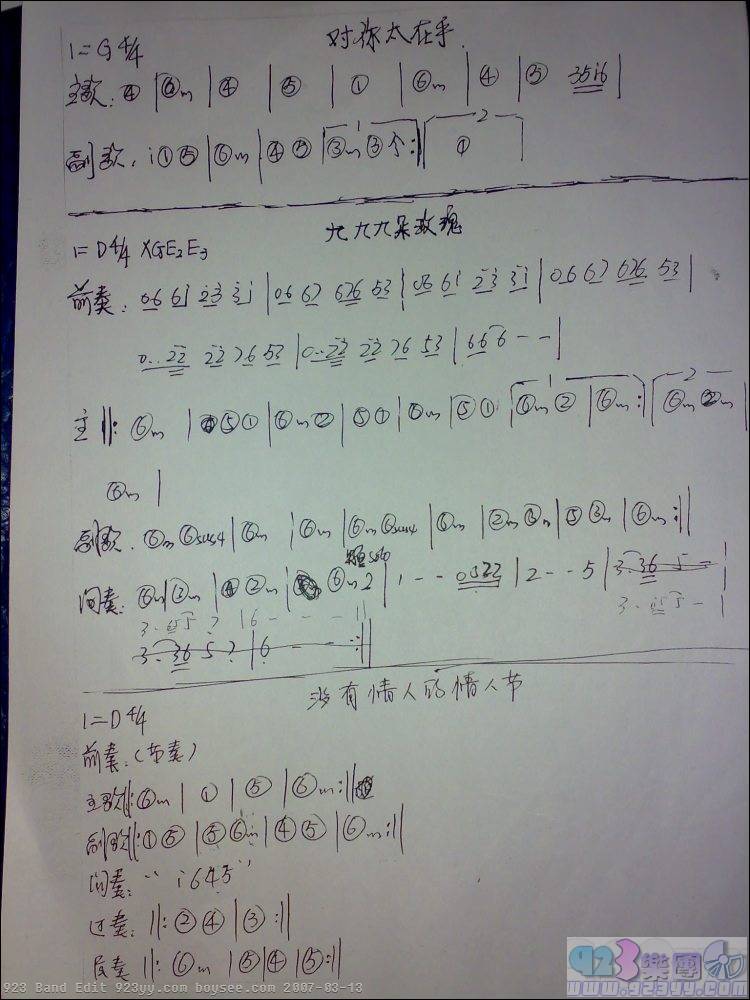 对你太在乎
1=G 4/4
主歌: ④ | ⑥m | ④ | ⑤ | ① | ⑥m | ④ | ⑤ 35i6 |
副歌: i ① ⑤ | ⑥m | ④ ⑤ | ③m ③ 个 :| ① 
九九九朵玫瑰
1=D 4/4 XGE2E3
前奏: 06 6i 23 3i | 06 67 676 53 | 06 6i 23 3i | 06 67 676 53 |
0..22 22 76 53 | 0..22 22 76 53 | 66 6 - - |
主 ||: ⑥m | ④⑤① | ⑥m ② | ⑤ ① | ⑥m | ⑤ ① | ⑥m ② | ⑥m :| ⑥m ②m |
⑥m |
副歌: ⑥m ⑥sus4 | ⑥m | ⑥m | ⑥m ⑥sus4 | ⑥m | ②m ③m | ⑤ ③m | ⑥m :||
solo
间奏: ⑥m | ③m | ④ ②m | ⑥m 2 | 1 - - 0322 | 2 - - 5 | 3. 36 5 - |
3. 65 5 - |
3. 65 5 7 | 6 - - - ||
3. 36 5 7 | 6 - - - :||
没有情人的情人节
1=D 4/4
前奏: (节奏)
主歌 ||: ⑥m | ① | ⑤ | ⑥m :||
副歌 ||: ① ⑤ | ⑤ ⑥m | ④ ⑤ | ⑥m :||
间奏: “i645”
过奏: ||: ② ④ | ③ :||
尾奏 ||: ⑥m | ⑤ | ④ | ③ :||
923樂團
www.923yy.com
923 Band Edit 923yy.com boysee.com 2007-03-13